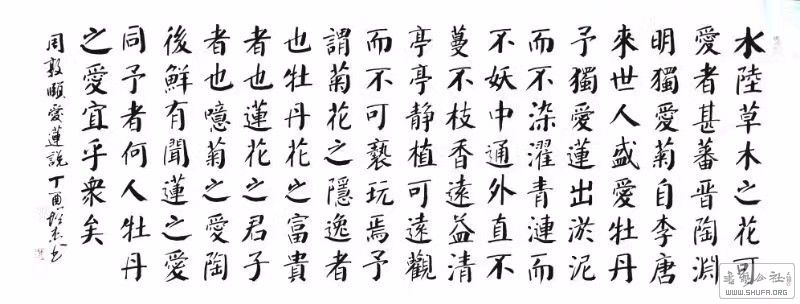 水陸草木之花可
愛者甚蕃晋陶淵
明獨愛菊自李唐
來世人盛愛牡丹
予獨愛蓮出淤泥
而不染濯青漣而
不妖中通外直不
蔓不枝香遠益清
亭亭静植可遠觀
而不可褻玩焉予
謂菊花之隱逸者
也牡丹花之富貴
者也蓮花之君子
者也噫菊之愛陶
後鮮有聞蓮之愛
同予者何人牡丹
之愛宜乎衆矣
周敦頤愛蓮説 丁酉
書法公社
WWW.SHUFA.ORG